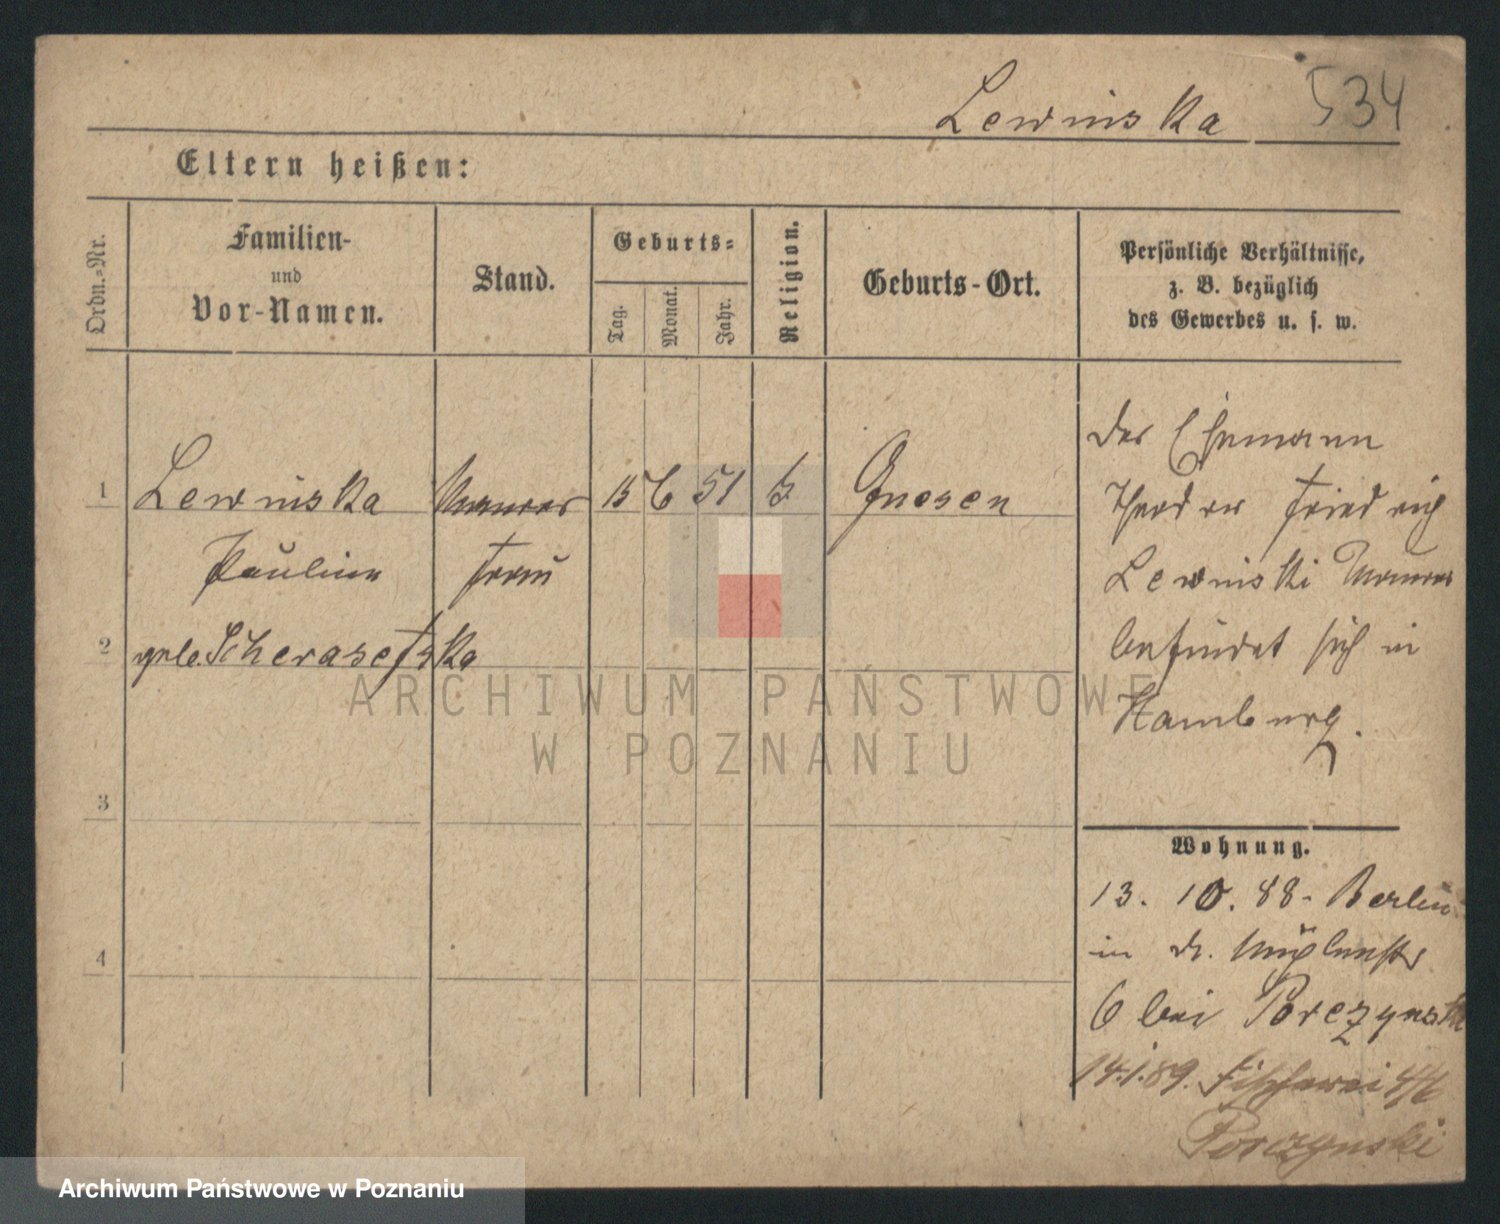 Lewinska 534
Eltern heißen:
Ordn.-Nr.
Familien-
und
Vor-Namen.
Stand.
Geburts-
Tag.
Monat.
Jahr.
Religion.
Geburts-Ort.
Persönliche Verhältnisse,
z. B. bezüglich
des Gewerbes u. s. w.
1 Lewinska Maurer 15 6 51 Gnesen
Pauline Frau
2 gebe
3
4
Der Ehemann
Theodor Friedrich
Lewinski Maurer
befindet sich in
Hamburg.
Wohnung.
13. 10. 88. Berlin
in Kl.
6 bei Porczynski
14.1.89. Fischerei 4/6
Porczynski
ARCHIWUM PAŃSTWOWE
W POZNANIU
Archiwum Państwowe w Poznaniu